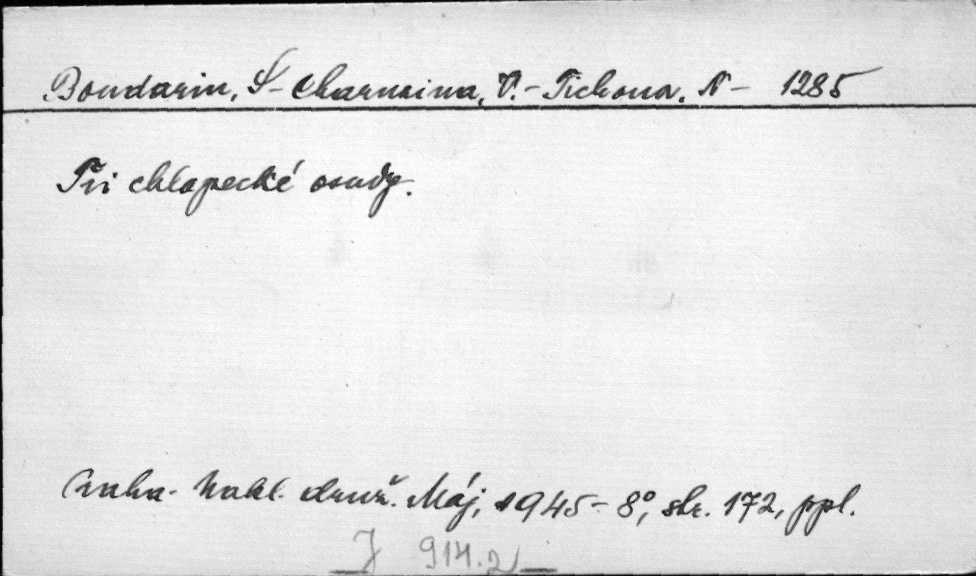 Bondarin, S - Charnzina, V. - Tichona, N - 1285
Tři chlapecké osudy.
Praha - Nakl. druž. Máj, 1945 - 8°, str. 172, ppl.
J 914.2